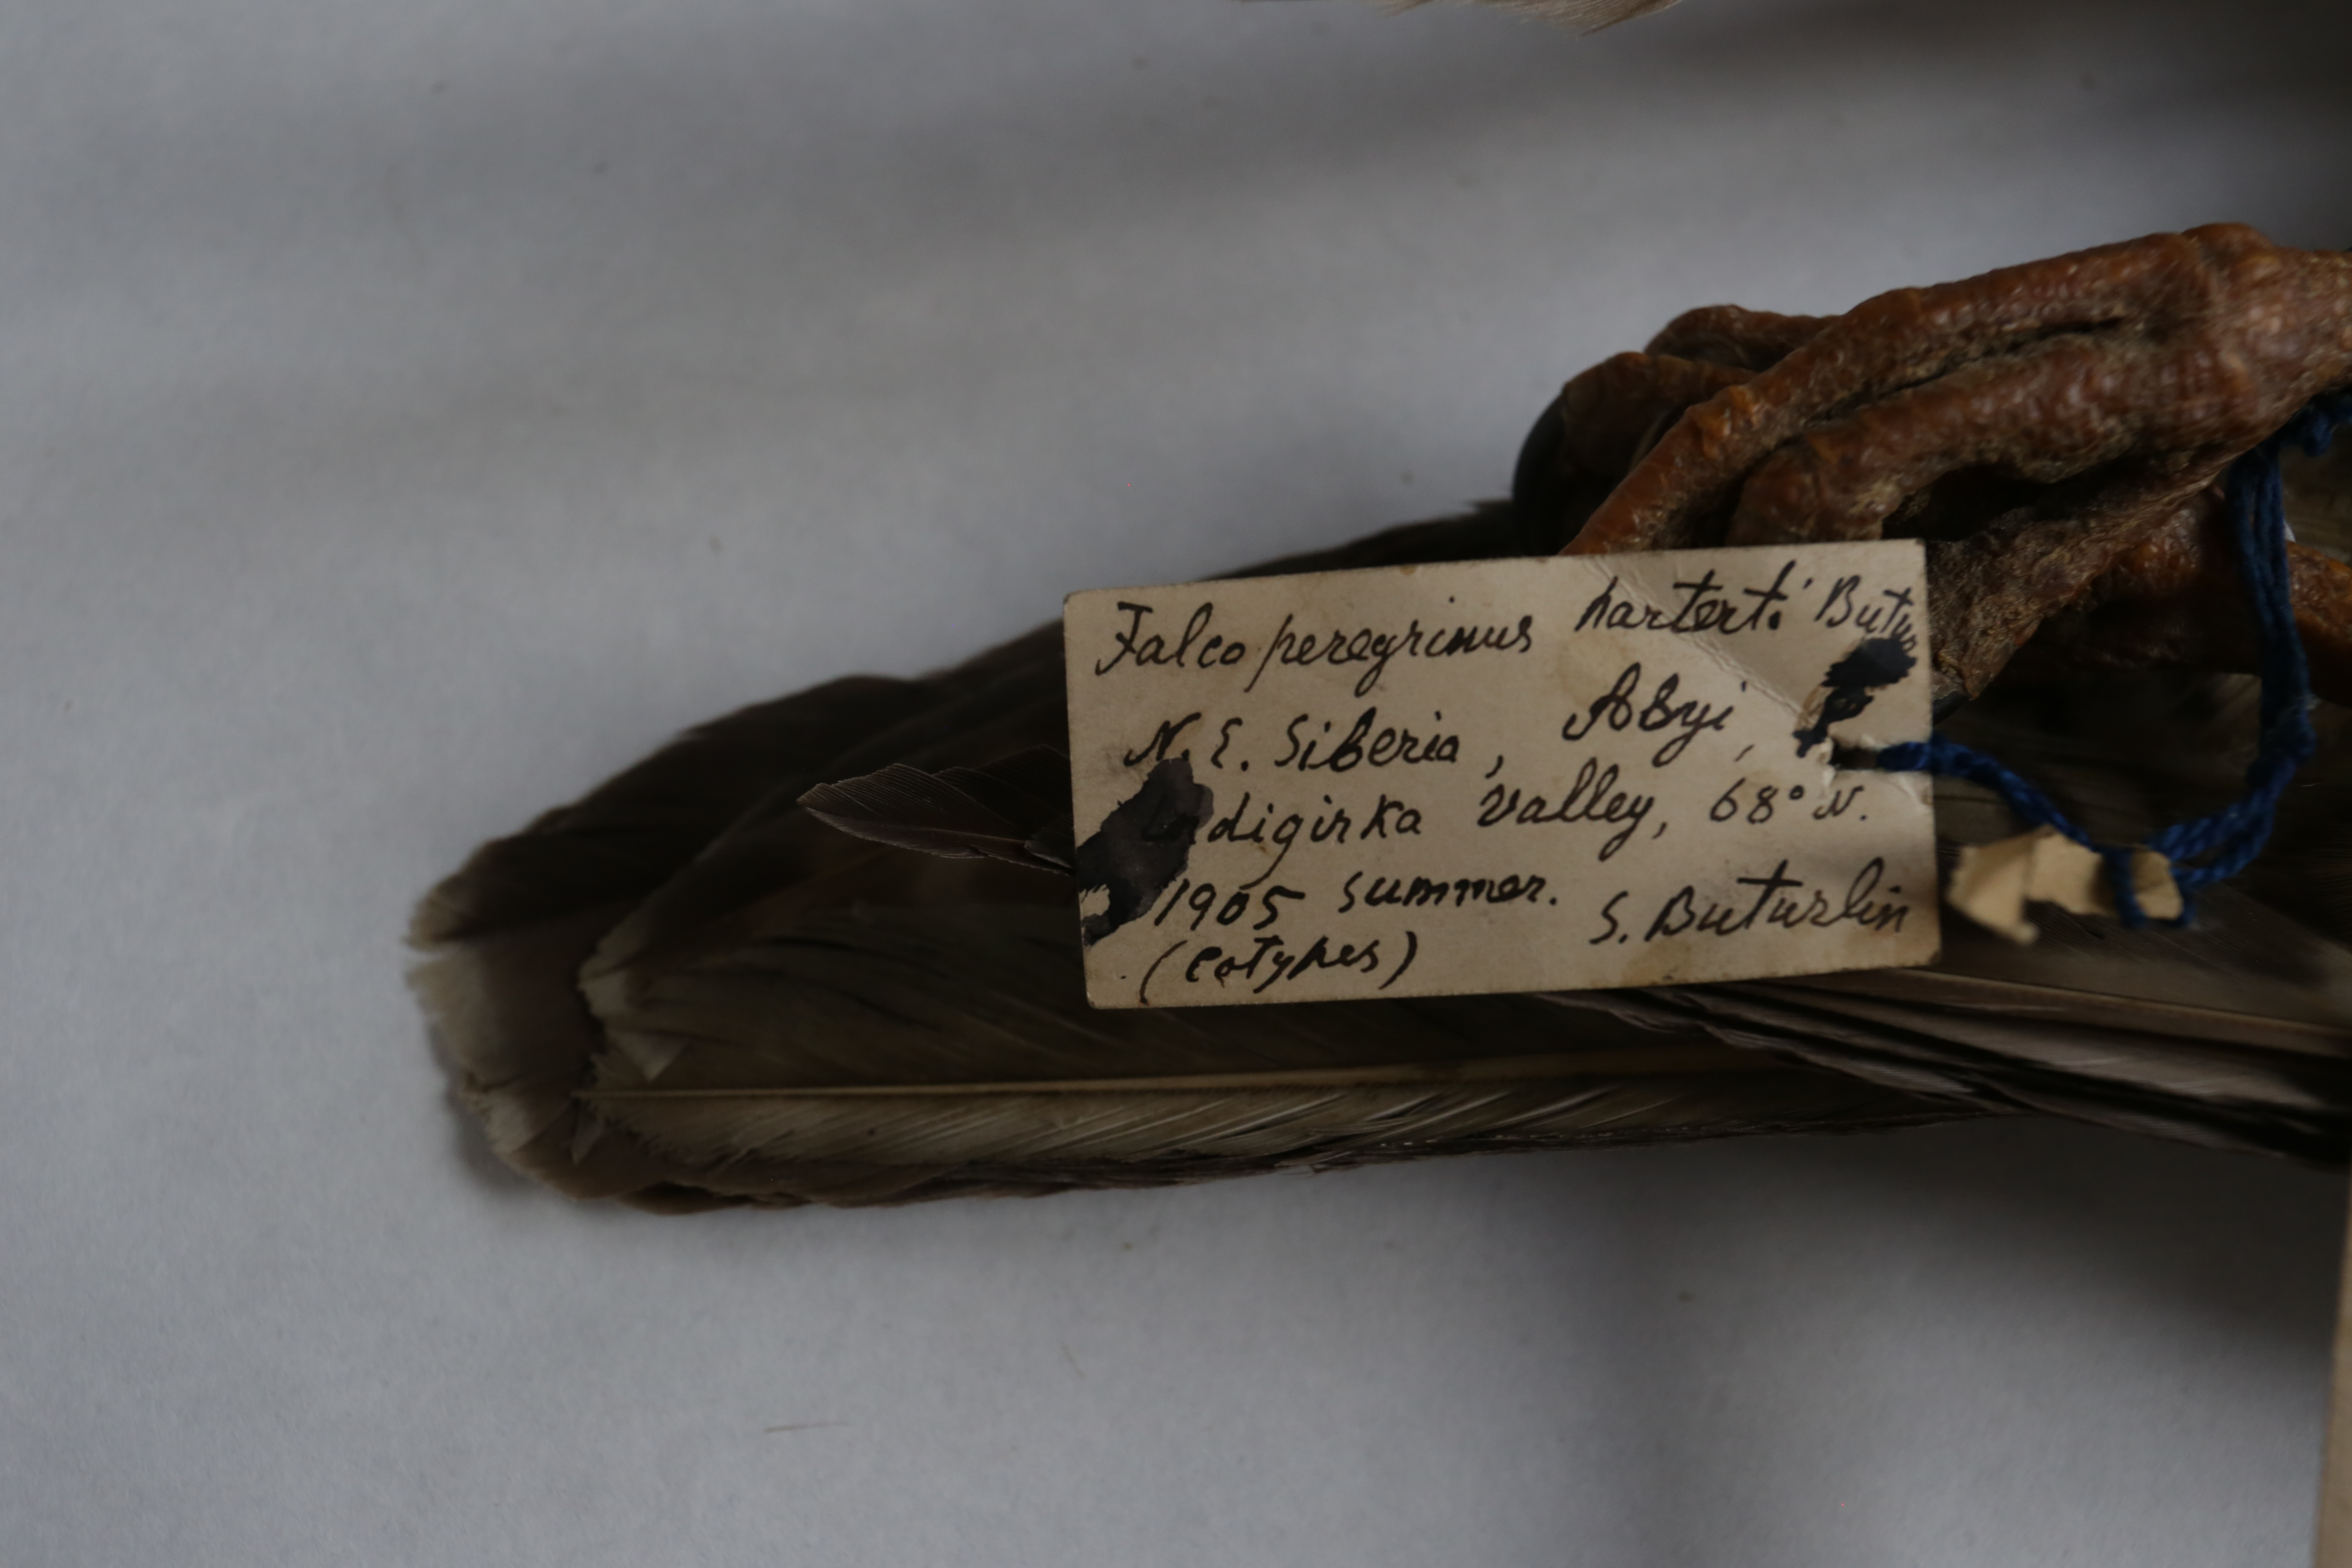 Falco peregrinus harterti Butur
N. E. Siberia, Abyi,
Indigirka valley, 68° N.
1905 summer.
S. Buturlin
(cotypes)